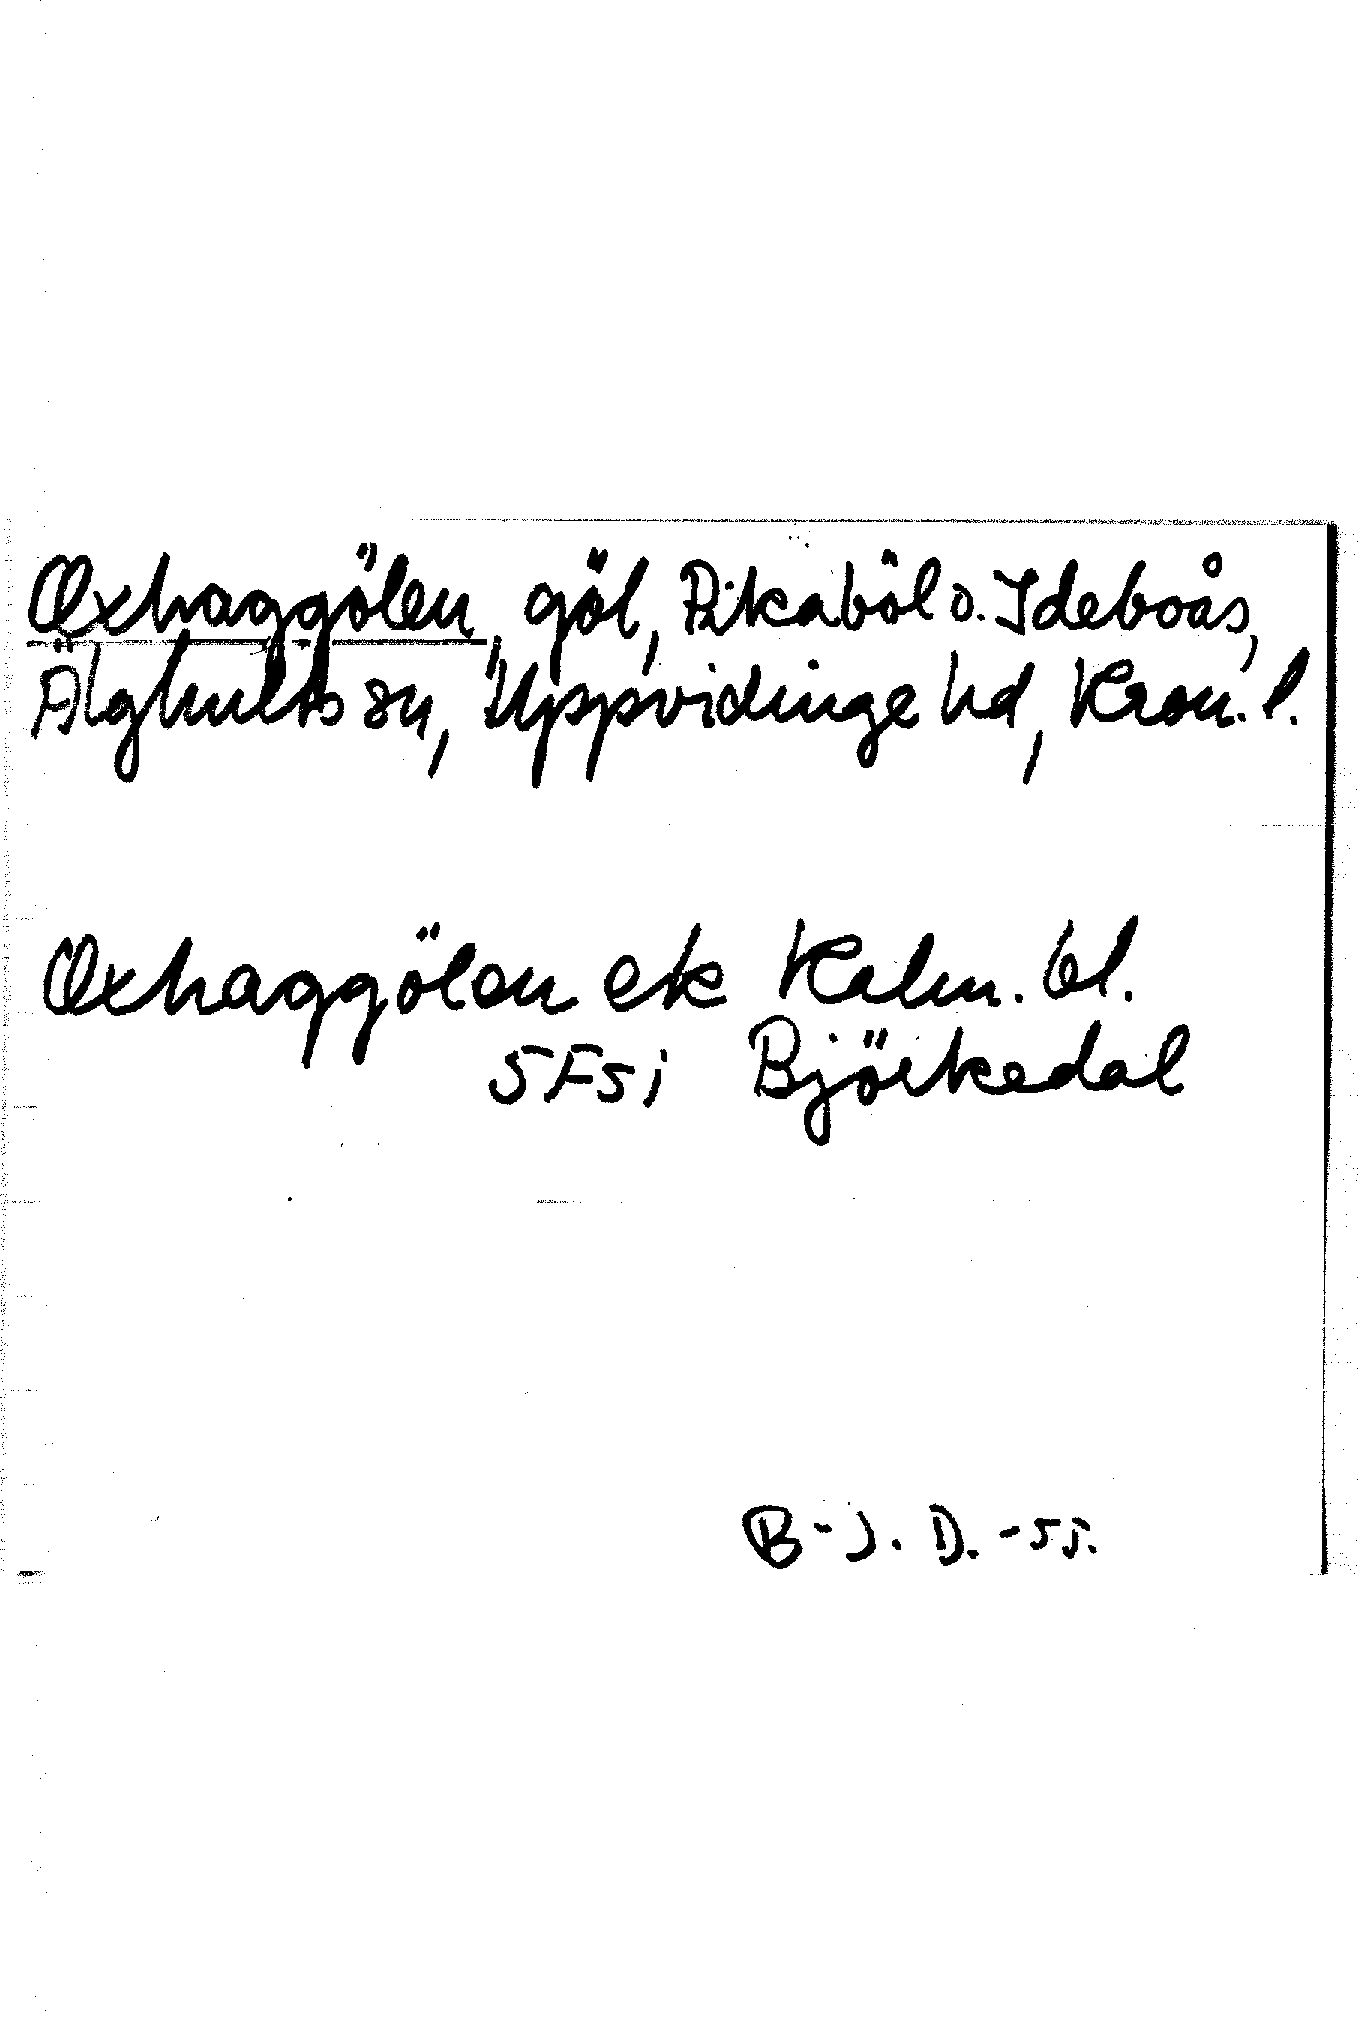 Oxhaggölen, göl, Pikaböl o. Ideboås,
Älghults sn, Uppvidinge hd, Kron. l.
Oxhaggölen ek Kalm. bl.
5F5i Björkedal
B-J. D. -55.